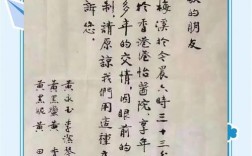 的朋友
梅溪於今晨六時三十三
於香港港怡醫院，享年
多年的交情，因眼前的
制，請原諒我們用這種
訴您。
黃永玉 李
黃黑蠻
黃黑妮 黃